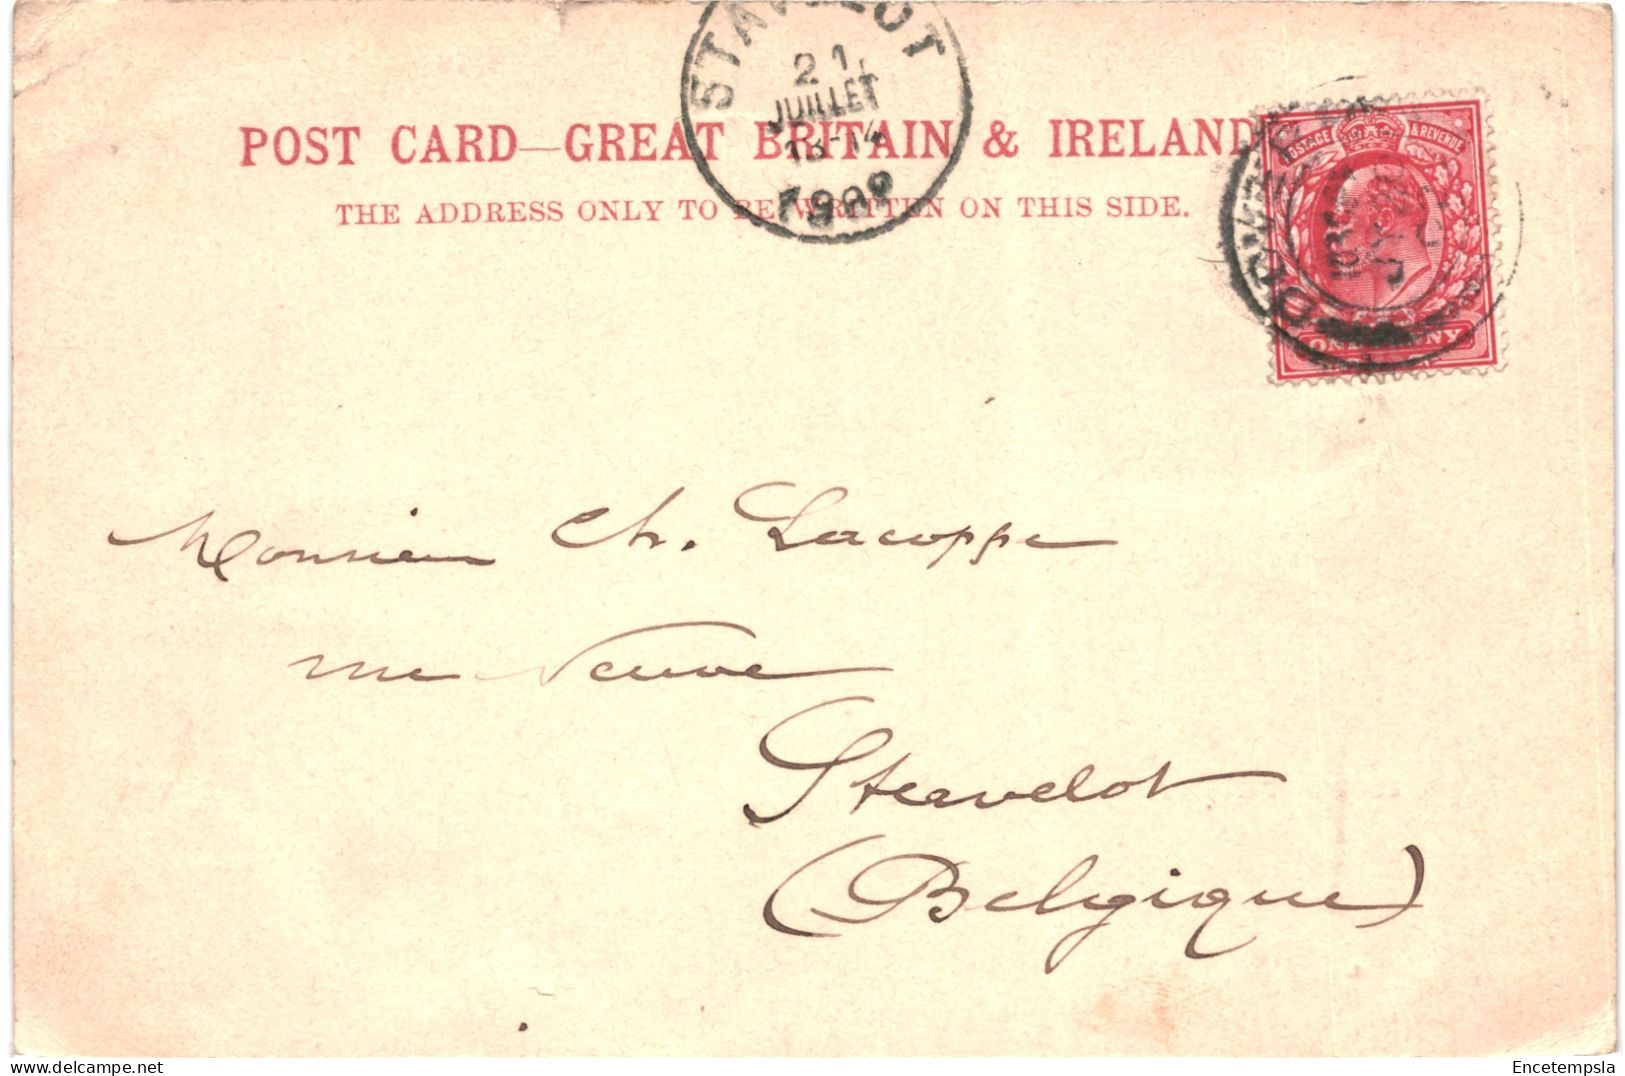 STAVELOT
21
JUILLET
13-14
POST CARD—GREAT BRITAIN & IRELAND
THE ADDRESS ONLY TO BE WRITTEN ON THIS SIDE.
POSTAGE & REVENUE
ONE PENNY
Monsieur Ch. Lacoppe
rue Neuve
Stavelot
(Belgique)
Encetempsla